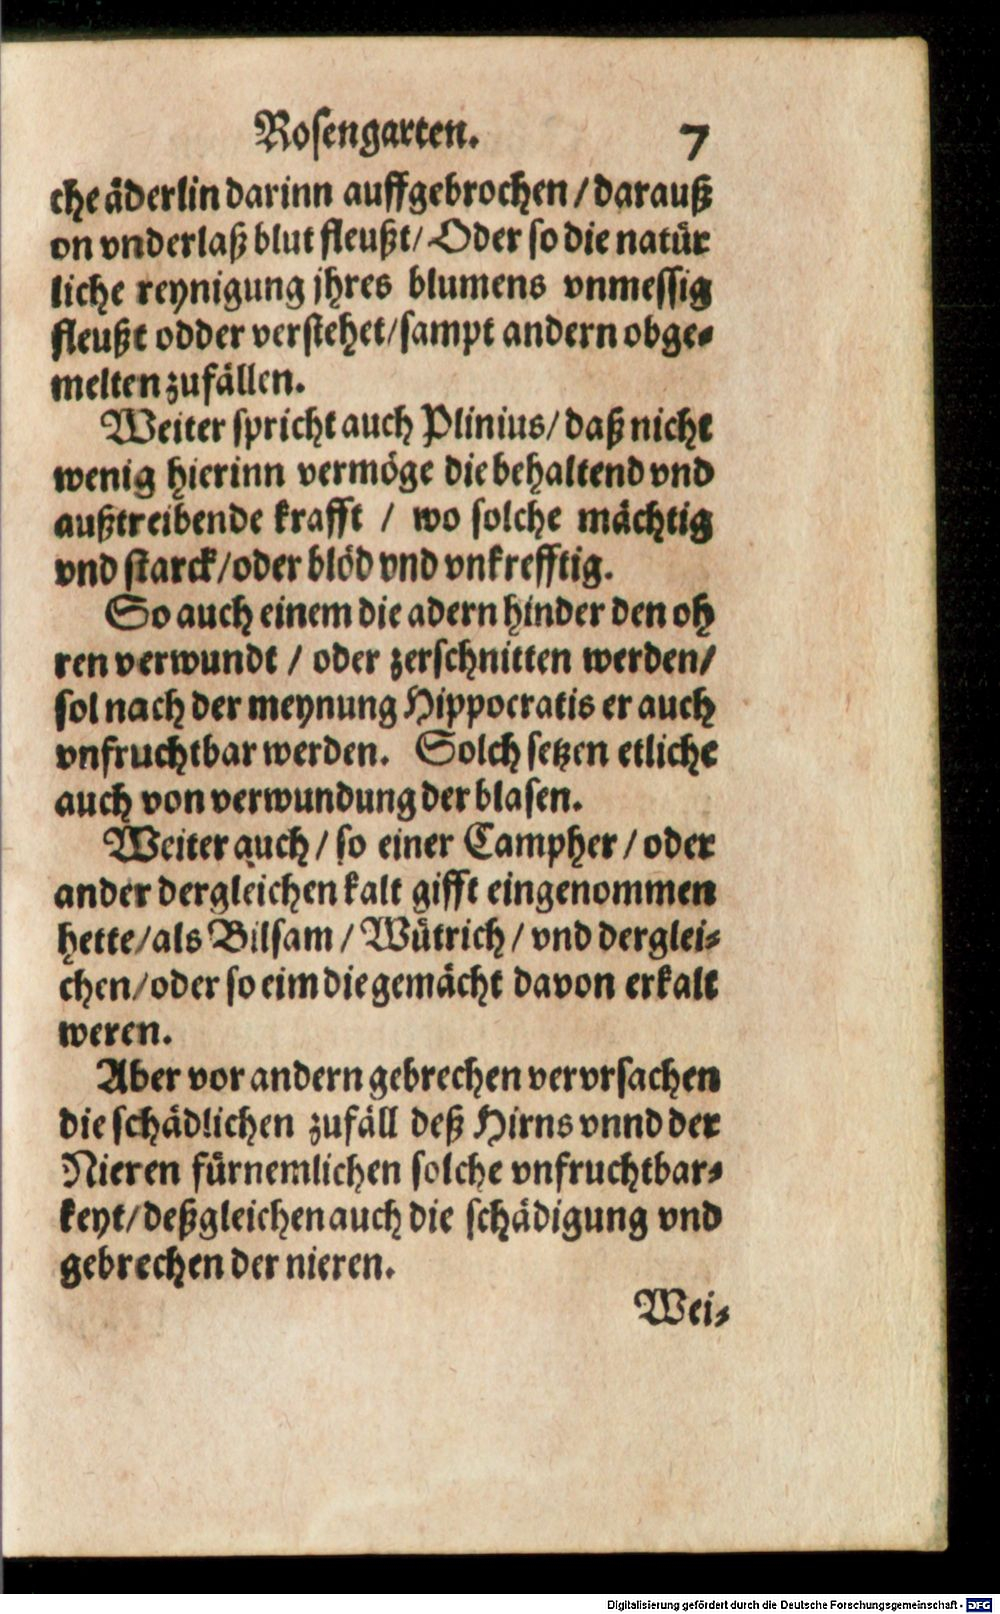 Rosengarten. 7
che äderlin darinn auffgebrochen / darauß
on vnderlaß blut fleußt / Oder so die natür
liche reynigung jhres blumens vnmessig
fleußt odder verstehet / sampt andern obge⸗
melten zufällen.
Weiter spricht auch Plinius / daß nicht
wenig hierinn vermöge die behaltend vnd
außtreibende krafft / wo solche mächtig
vnd starck / oder blöd vnd vnkrefftig.
So auch einem die adern hinder den oh
ren verwundt / oder zerschnitten werden /
sol nach der meynung Hippocratis er auch
vnfruchtbar werden. Solch setzen etliche
auch von verwundung der blasen.
Weiter auch / so einer Campher / oder
ander dergleichen kalt gifft eingenommen
hette / als Bilsam / Wütrich / vnd derglei⸗
chen / oder so eim die gemächt davon erkalt
weren.
Aber vor andern gebrechen vervrsachen
die schädlichen zufäll deß Hirns vnnd der
Nieren fürnemlichen solche vnfruchtbar⸗
keyt / deßgleichen auch die schädigung vnd
gebrechen der nieren.
Wei⸗
Digitalisierung gefördert durch die Deutsche Forschungsgemeinschaft - DFG